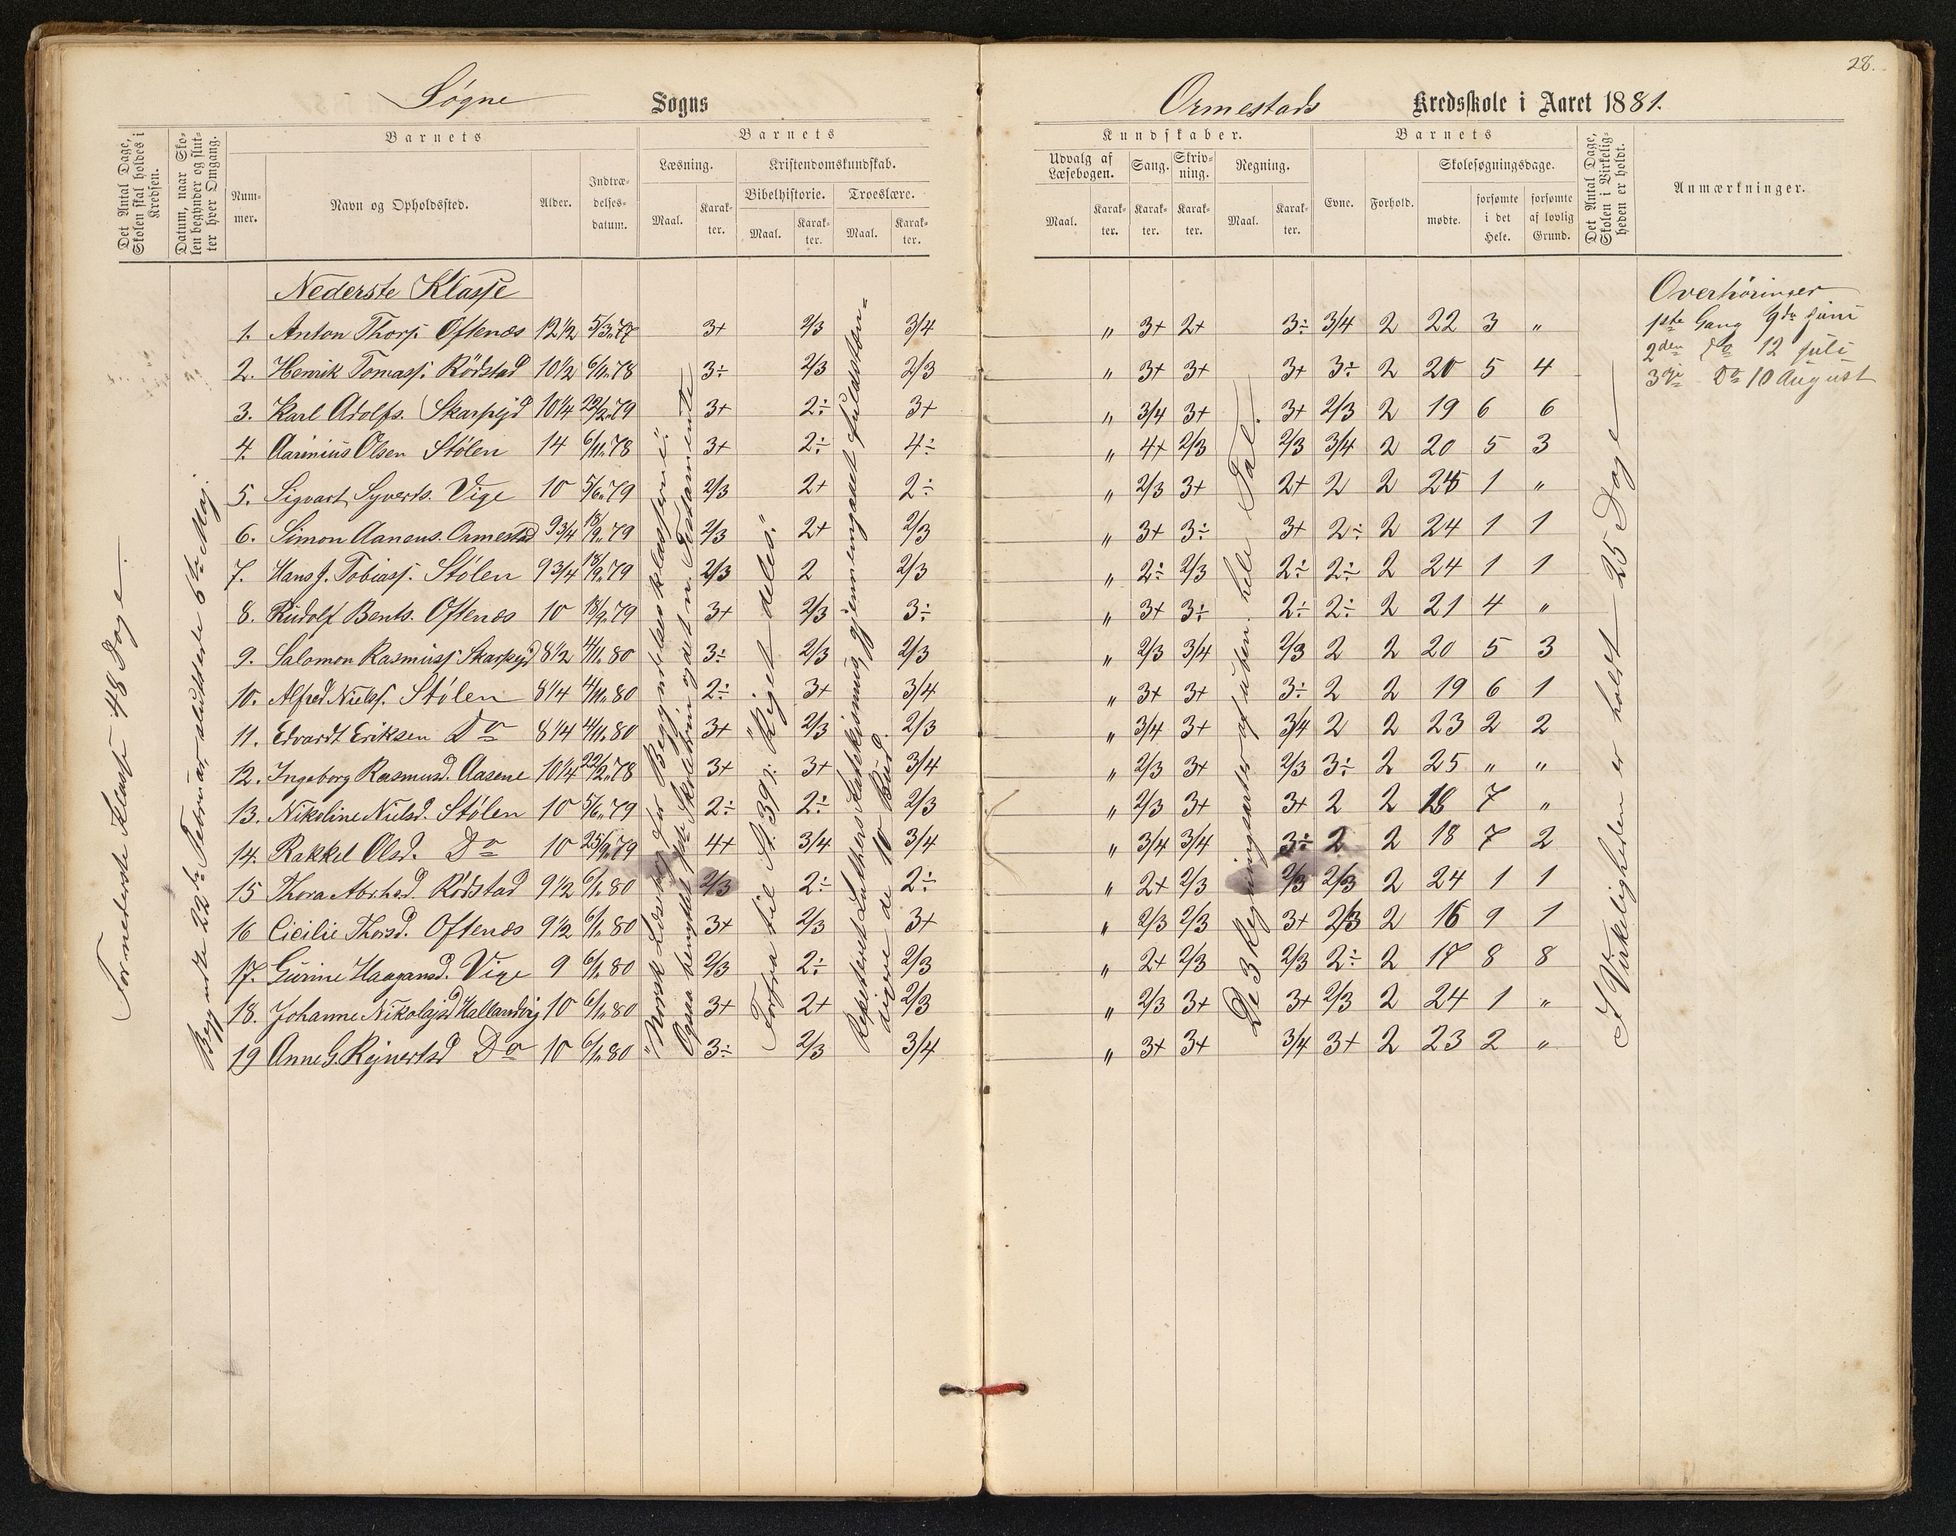 28.
Søgne Sogns
Ormestads Kredsskole i Aaret 1881.
Det Antal Dage, Skolen skal holdes i Kredsen.
Datum, naar Skolen begynder og slutter hver Omgang.
Barnets
Nummer.
Navn og Opholdssted.
Alder.
Indtrædelsesdatum.
Barnets
Læsning.
Maal.
Karakter.
Kristendomskundskab.
Bibelhistorie.
Maal.
Karakter.
Troeslære.
Maal.
Karakter.
Kundskaber.
Udvalg af Læsebogen.
Maal.
Karakter.
Sang.
Karakter.
Skrivning.
Karakter.
Regning.
Maal.
Karakter.
Barnets
Evne.
Forhold.
Skolesøgningsdage.
mødte.
forsømte i det Hele.
forsømte af lovlig Grund.
Det Antal Dage, Skolen i Virkeligheden er holdt.
Anmærkninger.
For nederste Klasse 48 Dage.
Begyndte 22de Februar sluttede 6te Maj.
Nederste Klasse
1. Anton Thorsj. Oftenæs 12½ 5/3 77 3+ 2/3 3/4 " 3+ 2+ 3÷ 3/4 2 22 3 "
2. Henrik Tomasj. Rödstad 10½ 6/11 78 3÷ 2/3 2/3 " 3+ 3+ 3+ 3÷ 2 20 5 4
3. Karl Adolfs. Skarpejd 10¼ 29/2 79 3+ 2÷ 3+ " 3/4 3+ 3+ 2/3 2 19 6 6
4. Olsen Stølen 14 6/11 78 3+ 2÷ 4÷ " 4+ 2/3 2/3 3/4 2 20 5 3
5. Sigvart Syverts. Vige 10 5/6 79 2/3 2+ 2÷ " 2/3 3+ 2+ 2 2 24 1 "
6. Simon Aaneus. Ormestad 9¾ 18/9 79 2/3 2+ 2/3 " 3+ 3÷ 3+ 2÷ 2 24 1 1
7. Hans J. Tobiasj. Stølen 9¾ 18/9 79 2/3 2 2/3 " 2÷ 2/3 2÷ 2÷ 2 24 1 1
8. Rudolf Bents. Oftenæs 10 18/9 79 3+ 2/3 3÷ " 3+ 3÷ 2÷ 2÷ 2 21 4 "
9. Salomon Rasmusj Skarpejd 8½ 4/11 80 3÷ 2/3 2/3 " 2/3 3/4 2/3 2 2 20 5 3
10. Alfred Nielsj. Stølen 8¼ 4/11 80 2÷ 3+ 3/4 " 3+ 3+ 3÷ 2 2 19 6 1
11. Edvardt Eriksen Do 8¼ 4/11 80 3+ 2/3 2/3 " 3/4 3+ 3/4 2 2 23 2 2
12. Ingeborg Rasmusd. Aasene 10¼ 22/2 78 3+ 3+ 3/4 " 2/3 3+ 2/3 3÷ 2 25 " "
13. Nikoline Nielsd. Stølen 10 5/6 79 2÷ 2÷ 2/3 " 2/3 3+ 3+ 2 2 18 7 "
14. Rakkel Olsd. Do 10 25/9 79 4+ 3/4 3/4 " 3/4 3/4 3÷ 2 2 18 7 2
15 Thora Abrhd. Rødstad 9½ 6/1 80 2/3 2÷ 2÷ " 2+ 2/3 2/3 2/3 2 24 1 1
16 Cicilie Thorsd. Oftenæs 9½ 6/1 80 3+ 2/3 3+ " 2/3 2/3 3+ 2/3 2 16 9 1
17. Gurine Haagansd. Vige 9 6/1 80 2/3 2÷ 2/3 " 2+ 2/3 2/3 2÷ 2 17 8 8
18. Johanne Nikolajsd Hallandvig 10 6/1 80 3+ 2+ 2/3 " 2/3 3+ 3+ 2/3 2 24 1 "
19 Anne G. Rejnertsd Do 10 6/1 80 3÷ 2/3 3/4 " 3+ 3+ 3/4 3+ 2 23 2 "
"Norsk Læsebog for Begyndelsesklasserne".
Ogsaa benyttet Skolebrug det n. Testamente
Forfra til St. 39 : "Riget deles".
Repeteret Luthers Katekismus, gjennemgaaet fuldstæn=
digere de 10 Bud.
De 3 Regningsarter og uden hele Tal.
I Virkeligheden er holdt 25 Dage
Overhøringer
1ste Gang 9de juni
2den Do 12 juli
3die Do 10 August